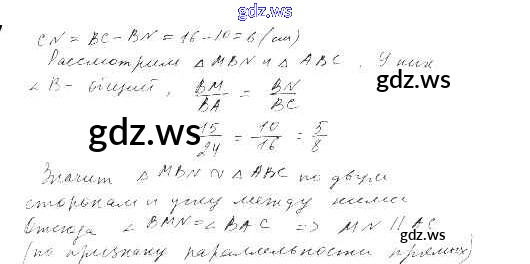 gdz.ws
CN = BC - BN = 16 - 10 = 6 (см)
Рассмотрим △ MBN и △ ABC. У них
∠ B - общий, BM/BA = BN/BC
gdz.ws
15/24 = 10/16 = 5/8
gdz.ws
Значит △ MBN ∾ △ ABC по двум
сторонам и углу между ними
Отсюда ∠ BMN = ∠ BAC => MN || AC
(по признаку параллельности прямых)
gdz.ws